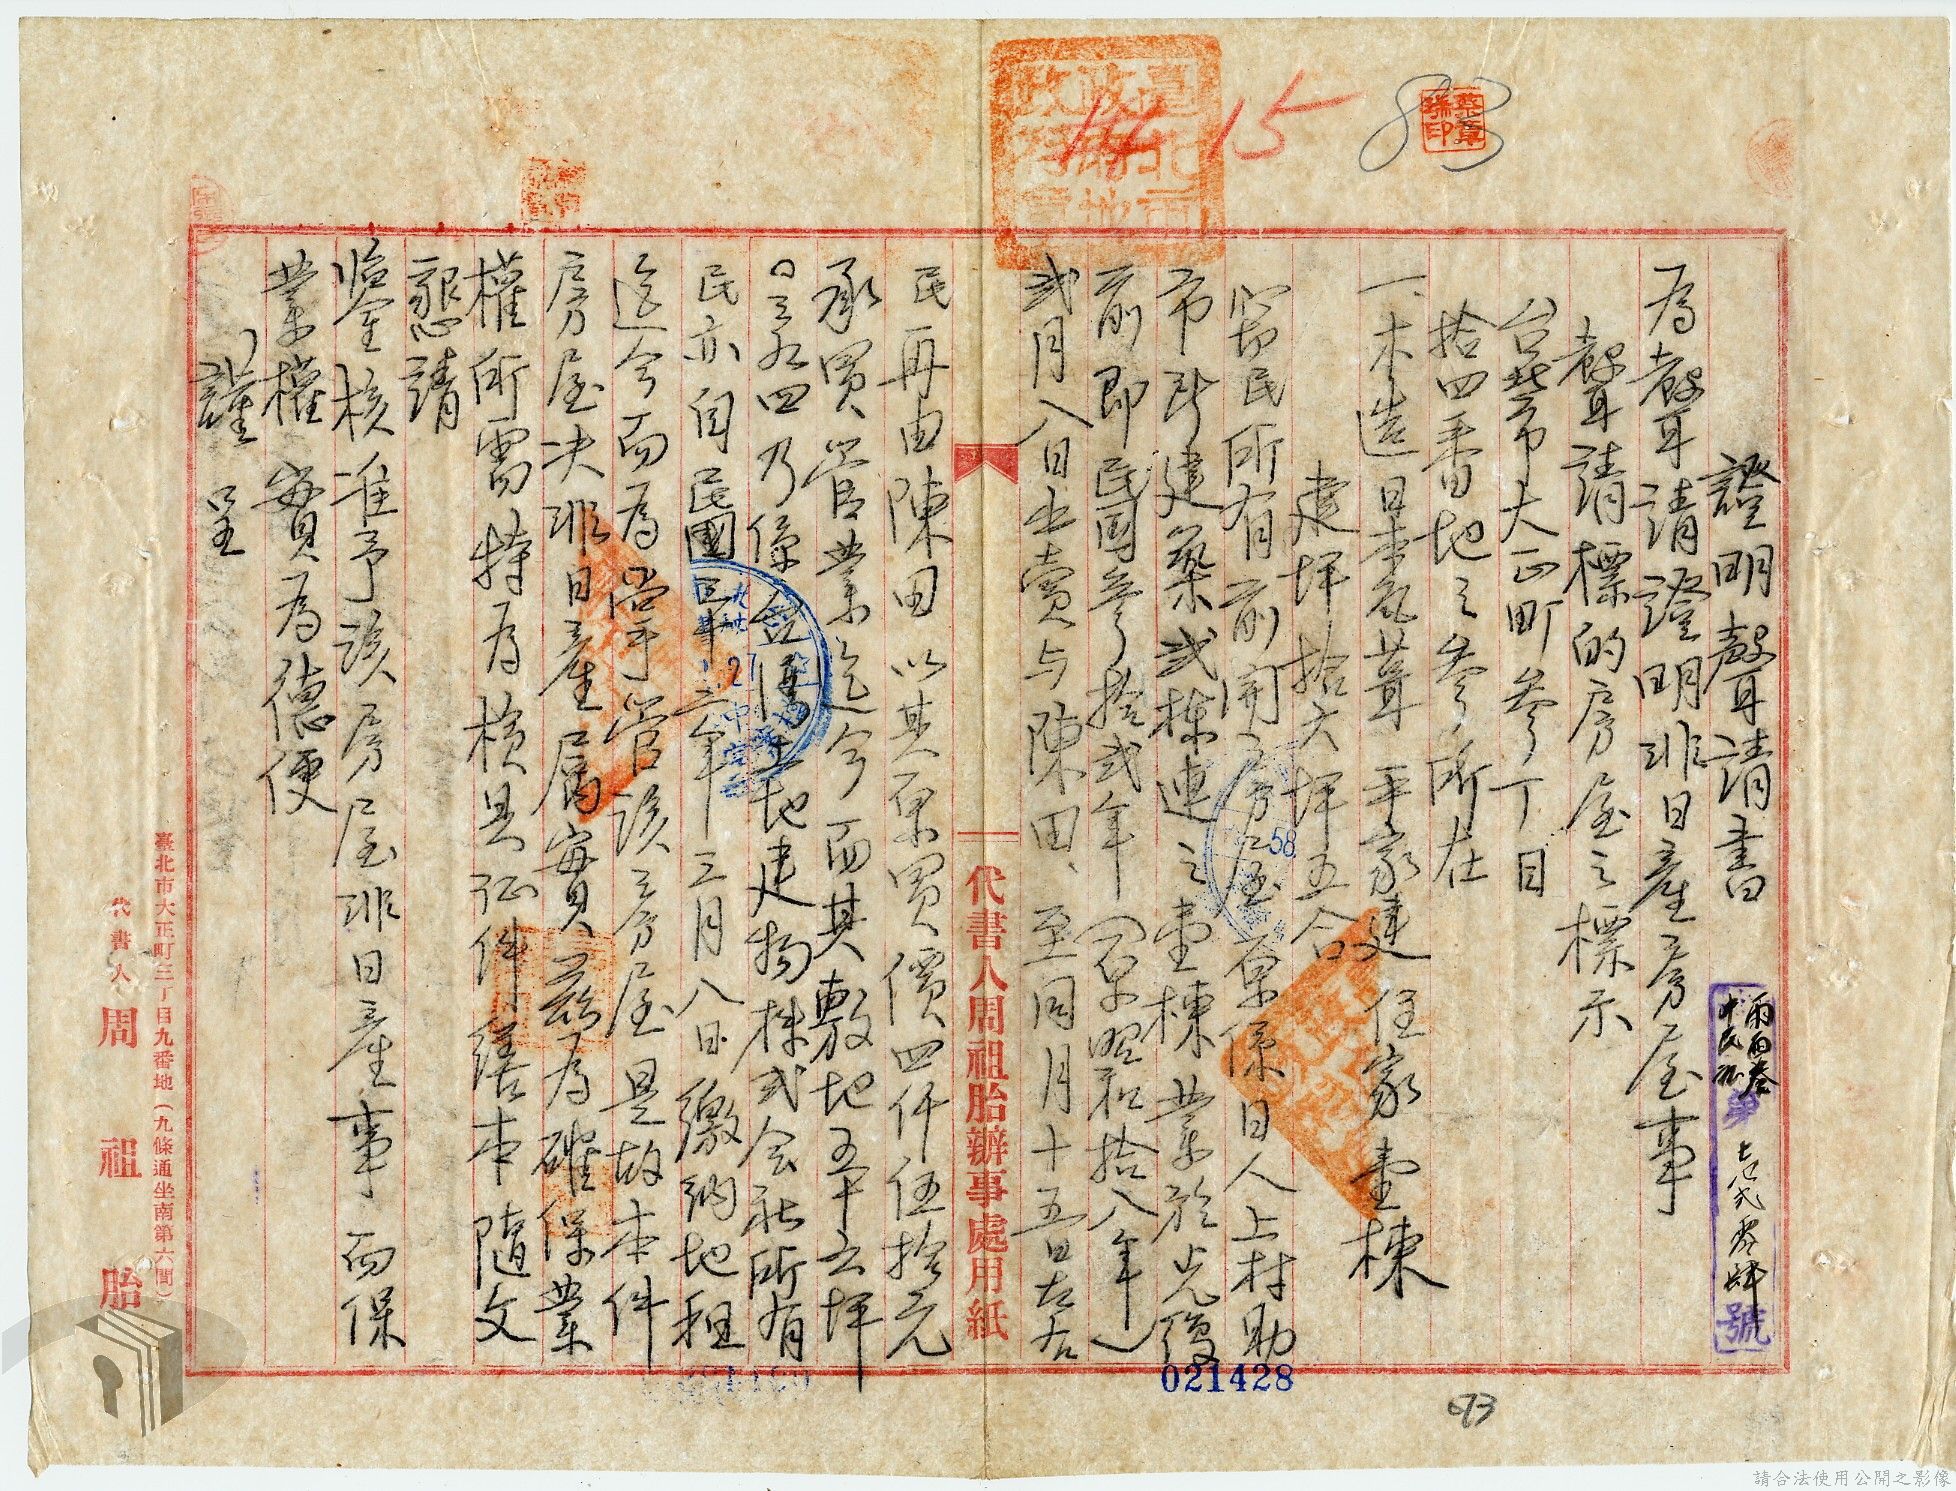 證明聲請書
為聲請證明非日產房屋事
聲請標的房屋之標示
台北市大正町參丁目
拾四番地之參所在
一、木造日本瓦葺平家建住家壹棟
建坪拾六坪五合
竊民所有前開房屋原係日人上村助
市所建築貳棟連之壹棟業於光復
前即民國參拾貳年(即昭和拾八年)
貳月八日出賣与陳田、至同月十五日左右
民再由陳田以其原買價四仟伍拾元
承買管業迄今而其敷地五十六坪
乃係台灣土地建物株式会社所有
民亦自民國三十二年三月八日繳納地租
迄今而為掌管該房屋是故本件
房屋決非日產屬實茲為確保業
權所需特為檢具証件繕本隨文
懇請
鑒核准予該房屋非日產事而保
業權實為德便
謹呈
代書人周祖胎辦事處用紙
臺北市大正町三丁目九番地(九條通坐南第六間)
代書人 周祖胎
第
號
14 15
83
58
27
021428
請合法使用公開之影像